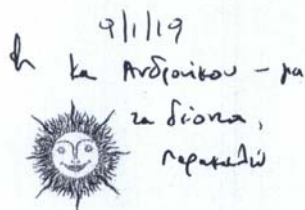 9/1/19
κα Ανδρονίκου – για
τα δέοντα,
παρακαλώ